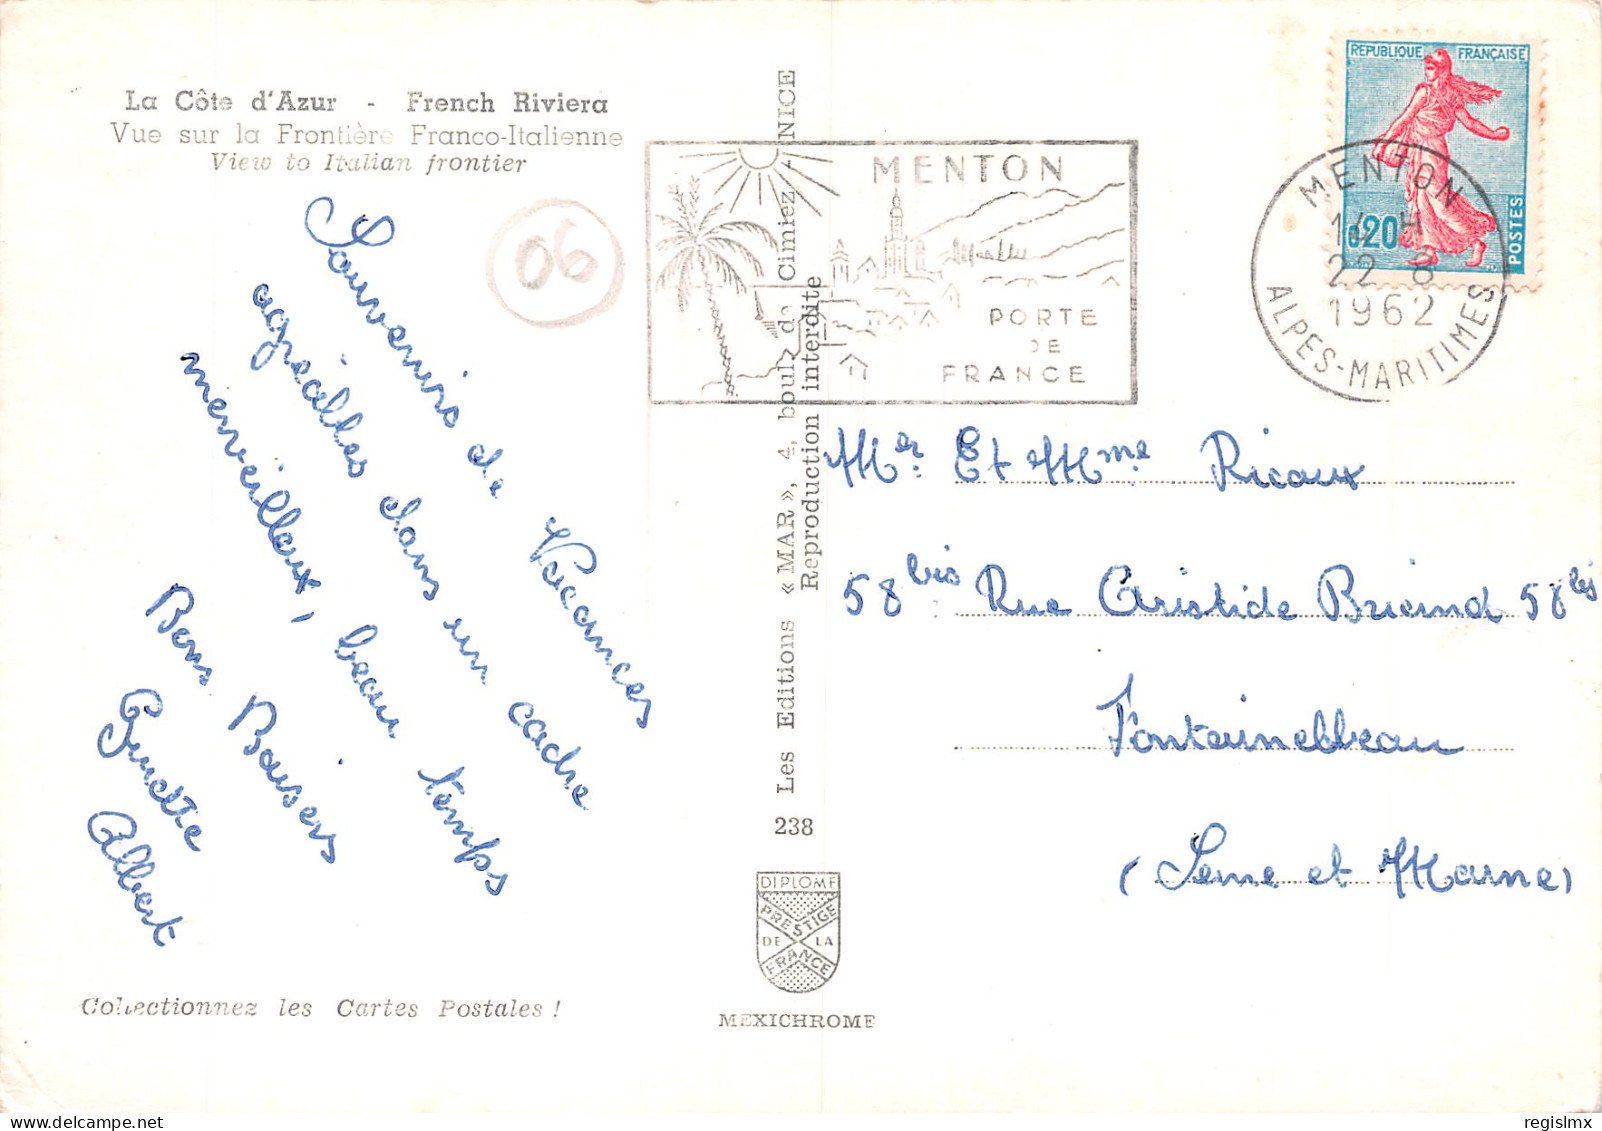 La Côte d'Azur - French Riviera
Vue sur la Frontière Franco-Italienne
View to Italian frontier
06
Souvenirs de Vacances
agréables dans un cadre
merveilleux, beau temps
Bons Baisers
Ginette
Albert
Collectionnez les Cartes Postales !
Les Editions «MAR», 4, boul. de Cimiez - NICE
Reproduction interdite
238
DIPLOME
PRESTIGE
DE LA
FRANCE
MEXICHROME
MENTON
PORTE
DE
FRANCE
REPUBLIQUE FRANÇAISE
0,20
POSTES
MENTON
H
22 8
1962
ALPES-MARITIMES
Mr Et Mme Ricoux
58 bis Rue Aristide Briand 58 bis
Fontainebleau
(Seine et Marne)
regislmx